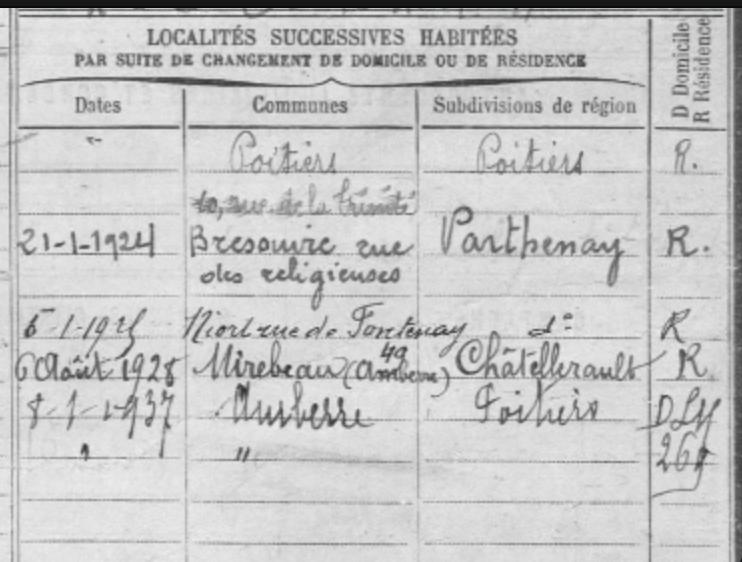 LOCALITÉS SUCCESSIVES HABITÉES
PAR SUITE DE CHANGEMENT DE DOMICILE OU DE RÉSIDENCE
D Domicile
R Résidence
Dates Communes Subdivisions de région
Poitiers Poitiers R.
10, rue de la Trinité
21-1-1924 Bressuire rue Parthenay R.
des religieuses
6-1-1925 Niort rue de Fontenay do R
6 Août 1928 Mirebeau (Amberre) Châtellerault R
8-1-1937 Amberre Poitiers D
" "